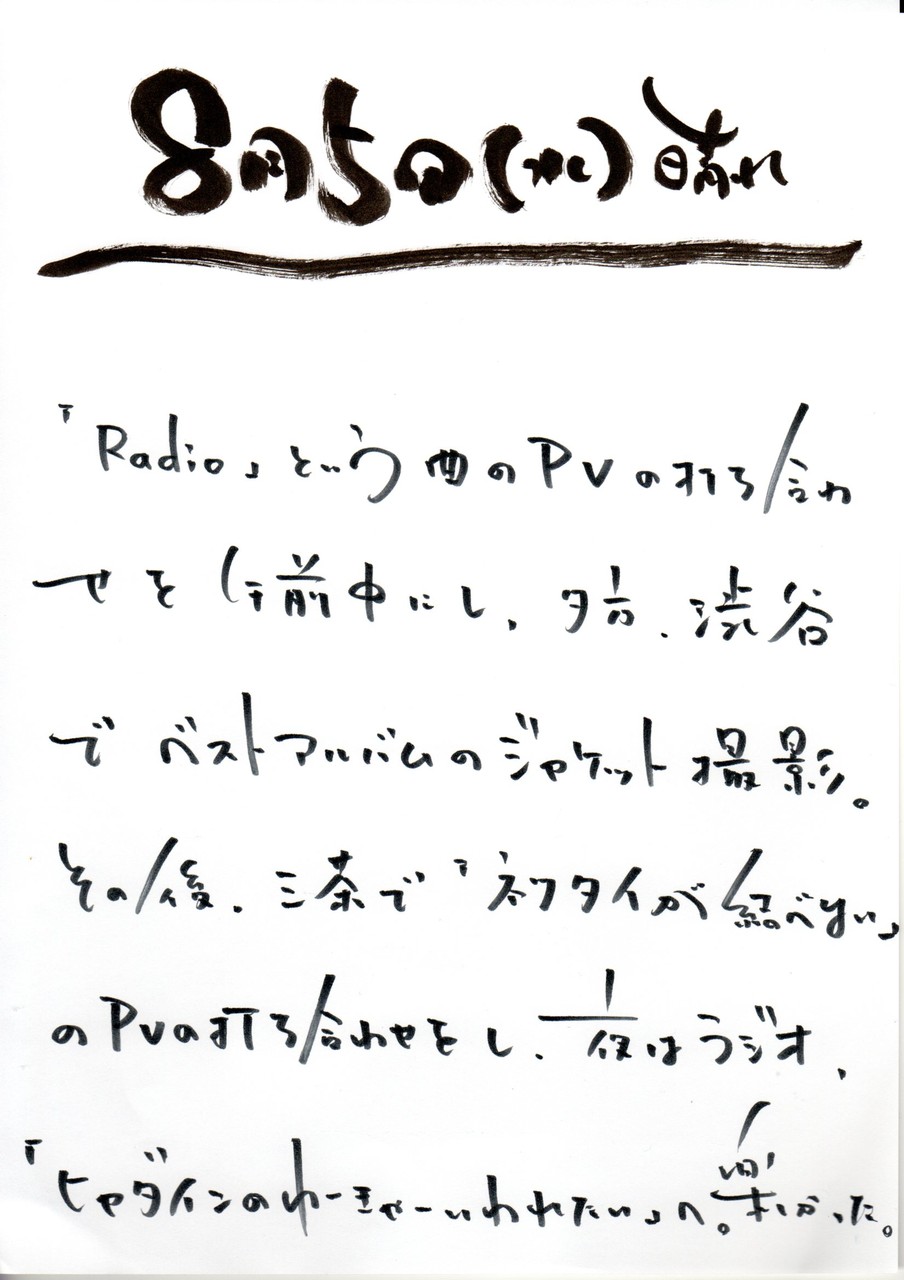 8月5日(水)晴れ
「Radio」という曲のPVの打ち合わ
せを午前中にし、夕方、渋谷
でベストアルバムのジャケット撮影。
その後、三茶で「ネクタイが結べない」
のPVの打ち合わせをし、夜はラジオ、
「ヒャダインのわーきゃーいわれたい」へ。楽しかった。